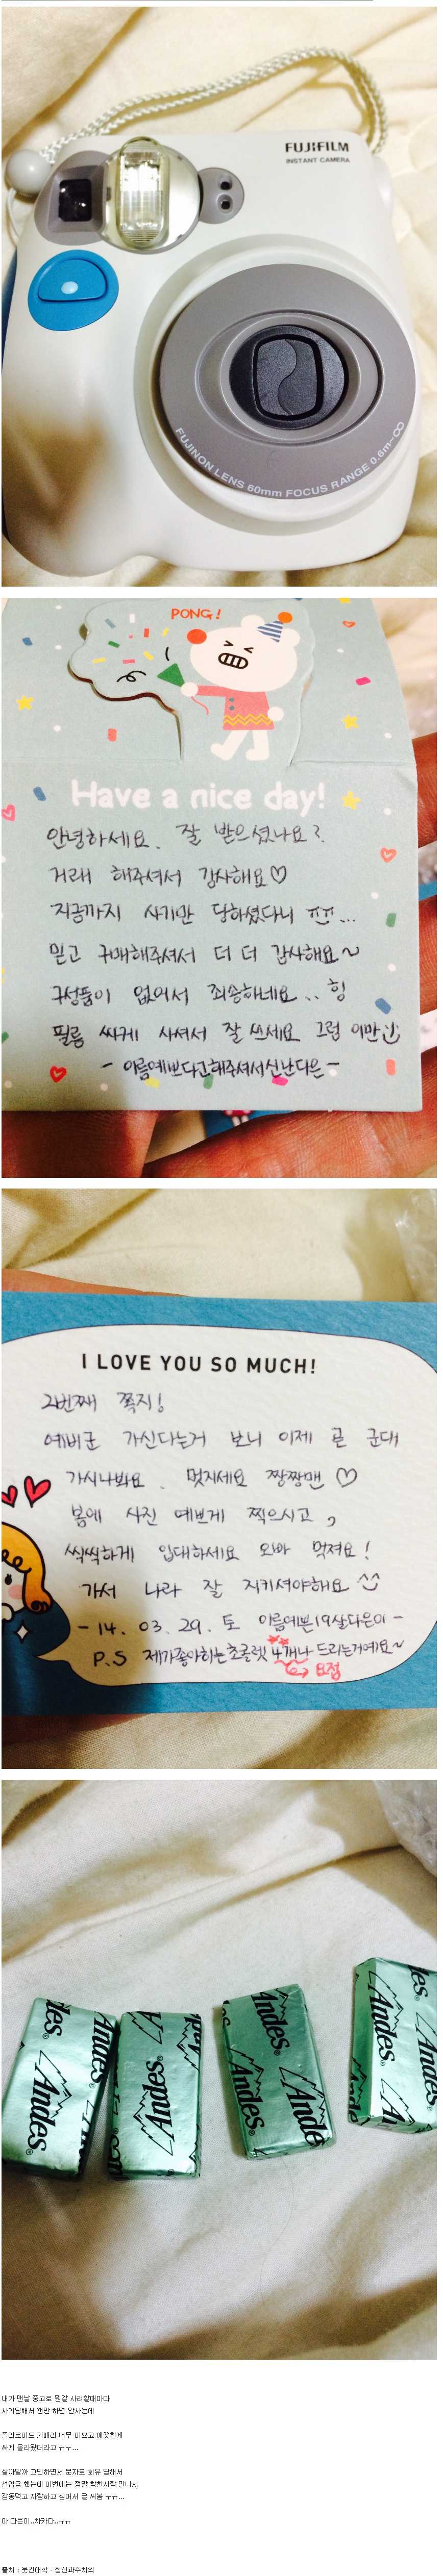 FUJIFILM
INSTANT CAMERA
FUJINON LENS 60mm FOCUS RANGE 0.6m~∞
PONG!
Have a nice day!
안녕하세요. 잘 받으셨나요?
거래 해주셔서 감사해요♡
지금까지 사기만 당하셨다니 ㅠㅠ...
믿고 구매해주셔서 더 더 감사해요~
구성품이 없어서 죄송하네요.. 힝
필름 싸게 사셔서 잘 쓰세요 그럼 이만
- 이름예쁘다고해주셔서신난다은 -
I LOVE YOU SO MUCH!
2번째 쪽지!
예비군 가신다는거 보니 이제 곧 군대
가시나봐요. 멋지세요 짱짱맨 ♡
봄에 사진 예쁘게 찍으시고,
씩씩하게 입대하세요 오빠 멋져요!
가서 나라 잘 지키셔야해요 ^^
- 14. 03. 29. 토 이름예쁜19살다은이 -
P.S 제가좋아하는초콜렛 4개나 드리는거예요~
요점
Andes
Andes
Andes
Andes
Andes
Andes
내가 맨날 중고로 뭔갈 사려할때마다
사기당해서 왠만 하면 안사는데
폴라로이드 카메라 너무 이쁘고 깨끗한게
싸게 올라왔더라고 ㅠㅜ...
살까말까 고민하면서 문자로 회유 당해서
선입금 했는데 이번에는 정말 착한사람 만나서
감동먹고 자랑하고 싶어서 글 써봄 ㅜㅠ...
아 다은이..차카다..ㅠㅠ
출처 : 웃긴대학 - 정신과주치의